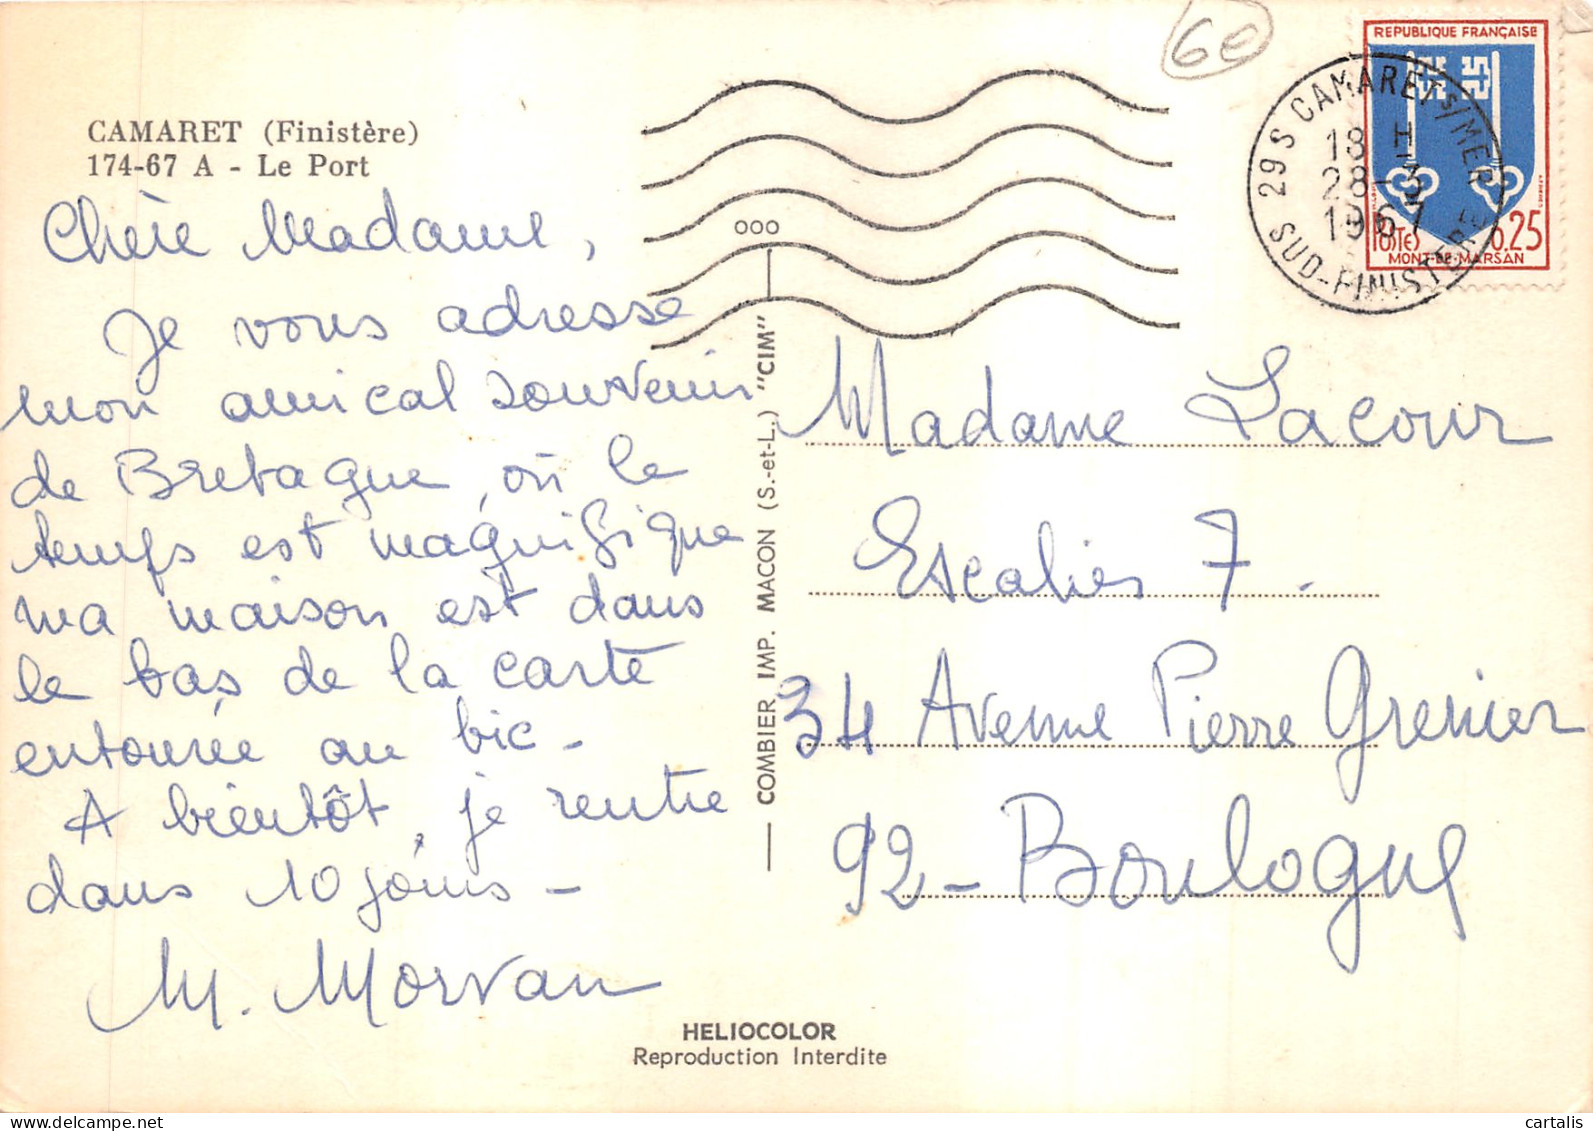 6e
REPUBLIQUE FRANÇAISE
POSTES 0.25
MONT-DE-MARSAN
29 S CAMARET S/MER
18 H
28-3
1967
SUD-FINISTERE
CAMARET (Finistère)
174-67 A - Le Port
Chère Madame,
Je vous adresse
mon amical souvenir
de Bretagne, où le
temps est magnifique
ma maison est dans
le bas de la carte
entourée au bic -
A bientôt, je rentre
dans 10 jours -
M. Morvan
000
COMBIER IMP. MACON (S.-et-L.) "CIM"
Madame Lacour
Escalier 7 -
34 Avenue Pierre Grenier
92 - Boulogne
HELIOCOLOR
Reproduction Interdite
delcampe.net
cartalis